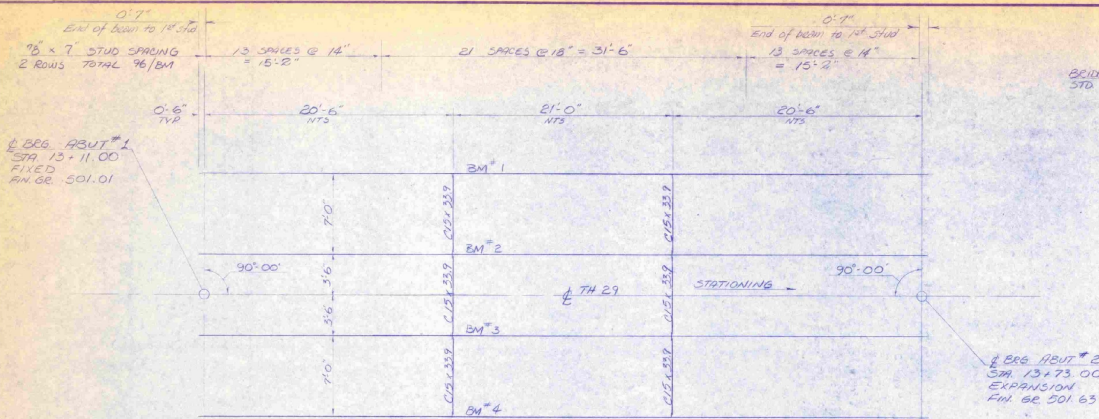 0'-7"
End of beam to 1st stud
7/8" x 7" STUD SPACING
2 ROWS TOTAL 96/BM
13 SPACES @ 14"
= 15'-2"
21 SPACES @ 18" = 31'-6"
0'-7"
End of beam to 1st Stud
13 SPACES @ 14"
= 15'-2"
STD
0'-6"
TYP.
20'-6"
NTS
21'-0"
NTS
20'-6"
NTS
℄ BRG. ABUT #1
STA. 13+11.00
FIXED
FIN. GR. 501.01
BM #1
7'-0"
C15 x 33.9
C15 x 33.9
BM #2
90°-00'
3'-6"
C15 x 33.9
℄ TH 29
STATIONING
C15 x 33.9
90°-00'
3'-6"
BM #3
7'-0"
C15 x 33.9
C15 x 33.9
BM #4
℄ BRG. ABUT #2
STA. 13+73.00
EXPANSION
FIN. GR. 501.63